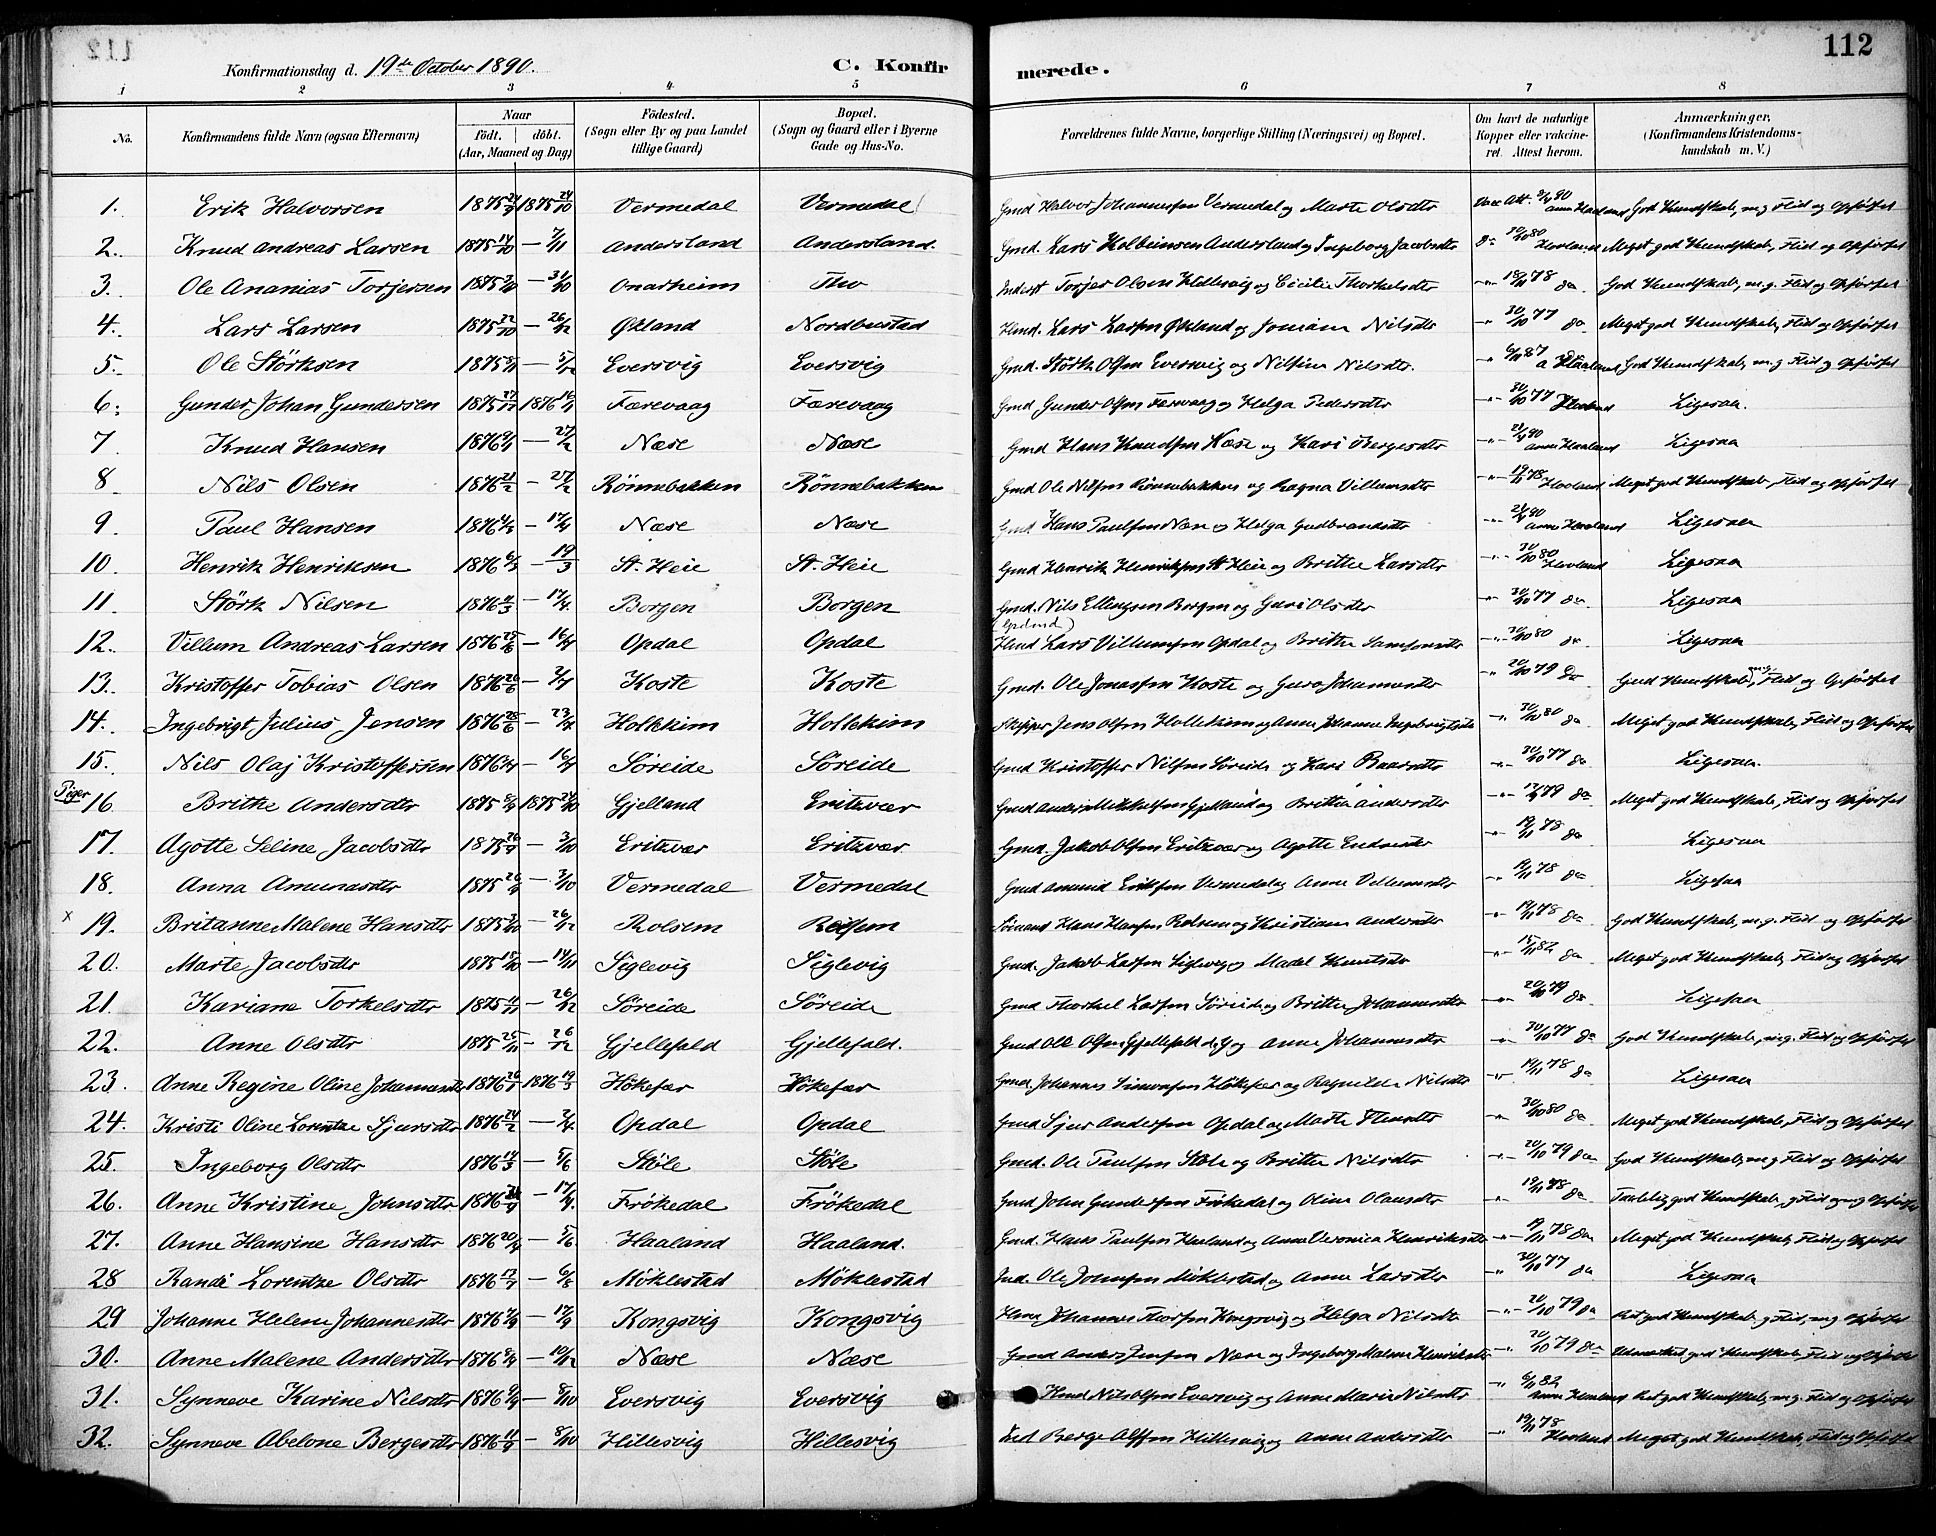 112
Konfirmationsdag d. 19de October 1890.
C. Konfirmerede.
1 2 3 4 5 6 7 8
No. Konfirmandens fulde Navn (ogsaa Efternavn) Naar födt. döbt. (Aar, Maaned og Dag) Födested. (Sogn eller By og paa Landet tillige Gaard) Bopæl. (Sogn og Gaard eller i Byerne Gade og Hus-No. Forældrenes fulde Navne, borgerlige Stilling (Næringsvei) og Bopæl. Om havt de naturlige Kopper eller vakcineret. Attest herom. Anmærkninger, (Konfirmandens Kristendomskundskab m. V.)
1. Erik Halvorsen 1875 1875 24/10 Vermedal Vermedal Gmd Halvor Johannesen Vermedal og Marte Olsdtr God Kundskab, m.g. Flid og Opførsel
2. Knud Andreas Larsen 1875 14/10 – 7/11 Andersland Andersland. Gmd. Lars Andersland og Ingeborg Jacobsdtr Meget god Kundskab, Flid og Opførsel
3. Ole Ananias Torjersen 1875 – 31/10 Onarheim Tho Torjer Olsen Hillesvig og Cecilie Thorkelsdtr God Kundskab, m.g. Flid og Opførsel
4. Lars Larsen 1875 22/10 – 26/12 Økland Nordbustad Lars Larsen Økland og Nilsdtr 30/10 77 do Meget god Kundskab, Flid og Opførsel
5. Ole Störksen 1875 – 5/12 Eversvig Eversvig Gmd. Störk Olsen Eversvig og Nilsine Nilsdtr. God Kundskab, m.g. Flid og Opførsel
6. Gunder Johan Gundersen 1875 27/12 1876 16/1 Færevaag Færevaag Gmd Gunder Olsen Færevaag og Helga Pedersdtr Ligesaa.
7 Knud Hansen 1876 – 27/2 Næse Næse Gmd Hans Knudsen Næse og Kari Bergesdtr Ligesaa
8 Nils Olsen 1876 21/2 – 27/2 Rönnebakken Rönnebakken Gmd Ole Nilsen Rönnebakken og Ragna Villumsdtr 19/11 78 Meget god Kundskab, Flid og Opførsel
9 Paul Hansen 1876 – 17/4 Næse Næse Gmd Hans Paulsen Næse og Helga Gudbrandsdtr Ligesaa
10 Henrik Henriksen 1876 6/3 – 19/3 St. Heie St. Heie Gmd Henrik Henriksen St Heie og Brithe Larsdtr 30/10 80 Ligesaa
11 Störk Nilsen 1876 – 17/4. Borgen Borgen Gmd. Nils Ellingsen Borgen og Guri Olsdtr 30/10 77 do Ligesaa
12. Villum Andreas Larsen 1876 – 16/7 Opdal Opdal Lars Villumsen Opdal og Brithe Samsonsdtr 30/10 80 do Ligesaa
13. Kristoffer Tobias Olsen 1876 20/6 – 2/7 Koste Koste Gmd. Ole Jonassen Koste og Guro Johannesdtr 20/10 79 do God Kundskab, m.g. Flid og Opførsel
14. Ingebrigt Julius Jensen 1876 28/6 – 23/7 Holkkim Holkkim Skipper Jens Olsen Holkkim og Anne Johanne Ingebrigtsdtr 30/10 80 do Meget god Kundskab, Flid og Opførsel
15. Nils Olaj Kristoffersen 1876 – 16/7 Söreide Söreide Gmd Kristoffer Nilsen Söreide og Kari Baarsdtr 30/10 77 do Ligesaa.
Piger
16 Brithe Andersdtr 1875 1875 24/10 Gjelland Eritzvær Gmd Anders Mikkelsen Gjelland og Brithe Andersdtr do Meget god Kundskab, Flid og Opførsel
17. Agotte Seline Jacobsdtr 1875 – 3/10 Eritzvær Eritzvær Gmd. Jakob Olsen Eritzvær og Agotte 19/11 78 do Ligesaa
18. Anna Amunsdtr 1875 26/9 – 3/10 Vermedal Vermedal Gmd Amund Eriksen Vermedal og Anne Villumsdtr 19/11 78 do Ligesaa
x 19. Britanne Malene Hansdtr 1875 – 26/12 Rolsem Rolsem Hans Hansen Rolsem og Kristiane Andersdtr 19/11 78 do God Kundskab, m.g. Flid og Opførsel
20. Marte Jacobsdtr 1875 – 14/11 Siglevig Siglevig Gmd. Jakob Larsen Siglevig og Madel Knutsdtr do Meget god Kundskab, Flid og Opførsel
21. Kariane Torkelsdtr 1875 – 26/12 Söreide Söreide Gmd Thorkel Larsen Söreide og Brithe Johannesdtr 20/10 79 do Ligesaa
22. Anne Olsdtr 1875 25/11 – 26/12 Gjellefald Gjellefald. Gmd Ole Olsen Gjellefald og Anne Johannesdtr 30/10 77 do God Kundskab, m.g. Flid og Opførsel
23. Anne Regine Oline Johannesdtr 1876 1876 19/3 Hökefær Hökefær Gmd. Johannes Hökefær og Ragnilde Nilsdtr 19/11 78 do Ligesaa
24. Kristi Oline Lorentze Sjursdtr 1876 24/2 – 2/4 Opdal Opdal Gmd Sjur Andersen Opdal og Marte 30/10 80 do Meget god Kundskab, Flid og Opførsel
25. Ingeborg Olsdtr 1876 14/3 – 5/6 Stöle Stöle Gmd. Ole Paulsen Stöle og Brithe Nilsdtr 20/10 79 do God Kundskab, m.g. Flid og Opførsel
26. Anne Kristine Johnsdtr 1876 – 17/4. Frökedal Frökedal Gmd John Gundersen Frökedal og Oline Olausdtr 19/11 78 do Taalelig god Kundskab, g Flid og m.g Opførsel
27. Anne Hansine Hansdtr 1876 20/4 – 5/6. Haaland Haaland. Gmd. Hans Paulsen Haaland og Anne Veronica Henriksdtr 19/11 78 do Meget god Kundskab, Flid og Opførsel
28 Randi Lorentze Olsdtr 1876 17/7 – 6/8 Möklestad Möklestad Ole Johnsen Möklestad og Anne Larsdtr 30/10 77 do Ligesaa
29 Johanne Helene Johannesdtr 1876 – 17/9 Kongsvig Kongsvig Johannes Kongsvig og Helga Nilsdtr 20/10 79 do god Kundskab, g Flid, m.g Opførsel
30. Anne Malene Andersdtr 1876 – 10/12 Næse Næse Gmd Anders Jensen Næse og Ingeborg Malene Henriksdtr 20/10 79 do god Kundskab, Flid og Opførsel
31. Synneve Karine Nilsdtr 1876 – 8/10 Eversvig Eversvig Nils Olsen Eversvig og Anne Marie Nilsdtr god Kundskab, m.g. Flid og Opførsel
32. Synneve Abelone Bergesdtr 1876 11/9 – 8/10 Hillesvig Hillesvig Berge Hillesvig og Anne Andersdtr 19/11 78 Meget god Kundskab, Flid og Opførsel